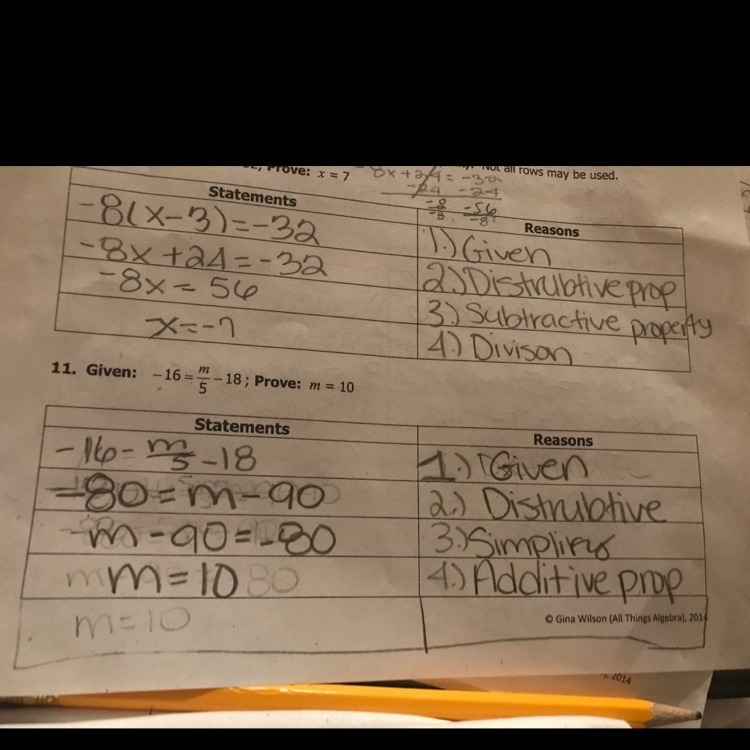 Prove: x = 7
Not all rows may be used.
-8x + 24 = -32
-24 -24
-8 -56
-8 -8
Statements
Reasons
-8(x-3)=-32
1.) Given
-8x+24=-32
2.) Distrubtive prop
-8x = 56
3.) Subtractive property
x=-7
4.) Divison
11. Given: -16 = m/5 - 18; Prove: m = 10
Statements
Reasons
-16= m/5 -18
1.) Given
-80=m-90
2.) Distrubtive
m-90=-80
3.) Simplifers
m=10
4.) Additive prop
m=10
© Gina Wilson (All Things Algebra), 2014
2014